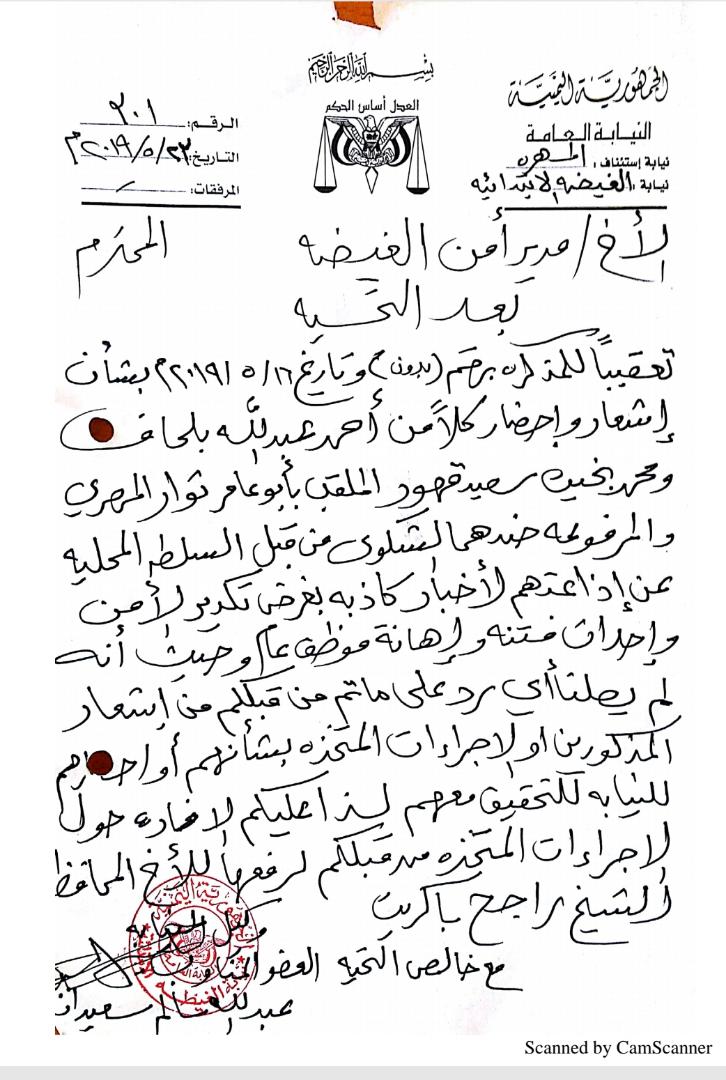 بسم الله الرحمن الرحيم
الجمهورية اليمنية
النيابة العامة
نيابة إستئناف: المهره
نيابة: الغيضه الابتدائيه
العدل أساس الحكم
الرقم: ٢٠١
التاريخ: ٢٣/٥/٢٠١٩م
المرفقات: /
الأخ / مدير أمن الغيضه المحترم
بعد التحيه
تعقيباً للمذكره برقم (بدون) وتاريخ ١٦/٥/٢٠١٩م بشأن
إشعار وإحضار كلاً من أحمد عبدالله بلحاف
ومحمد بخيت سعيد قهور الملقب بأبو عامر ثوار المهري
والمرفوعه ضدهما الشكوى من قبل السلطه المحليه
عن إذاعتهم لأخبار كاذبه بغرض تكدير لأمن
وإحداث فتنه وإهانة موظف عام وحيث أنه
لم يصلنا أي رد على ماتم من قبلكم من إشعار
المذكورين او الاجراءات المتخذه بشأنهم أو احضارهم
للنيابه للتحقيق معهم لذا عليكم الافاده حول
لاجراءات المتخذه من قبلكم لرفعها للأخ المحافظ
الشيخ راجح باكريت
وكيل النيابه
مع خالص التحيه العضو
عبدالله سالم
Scanned by CamScanner